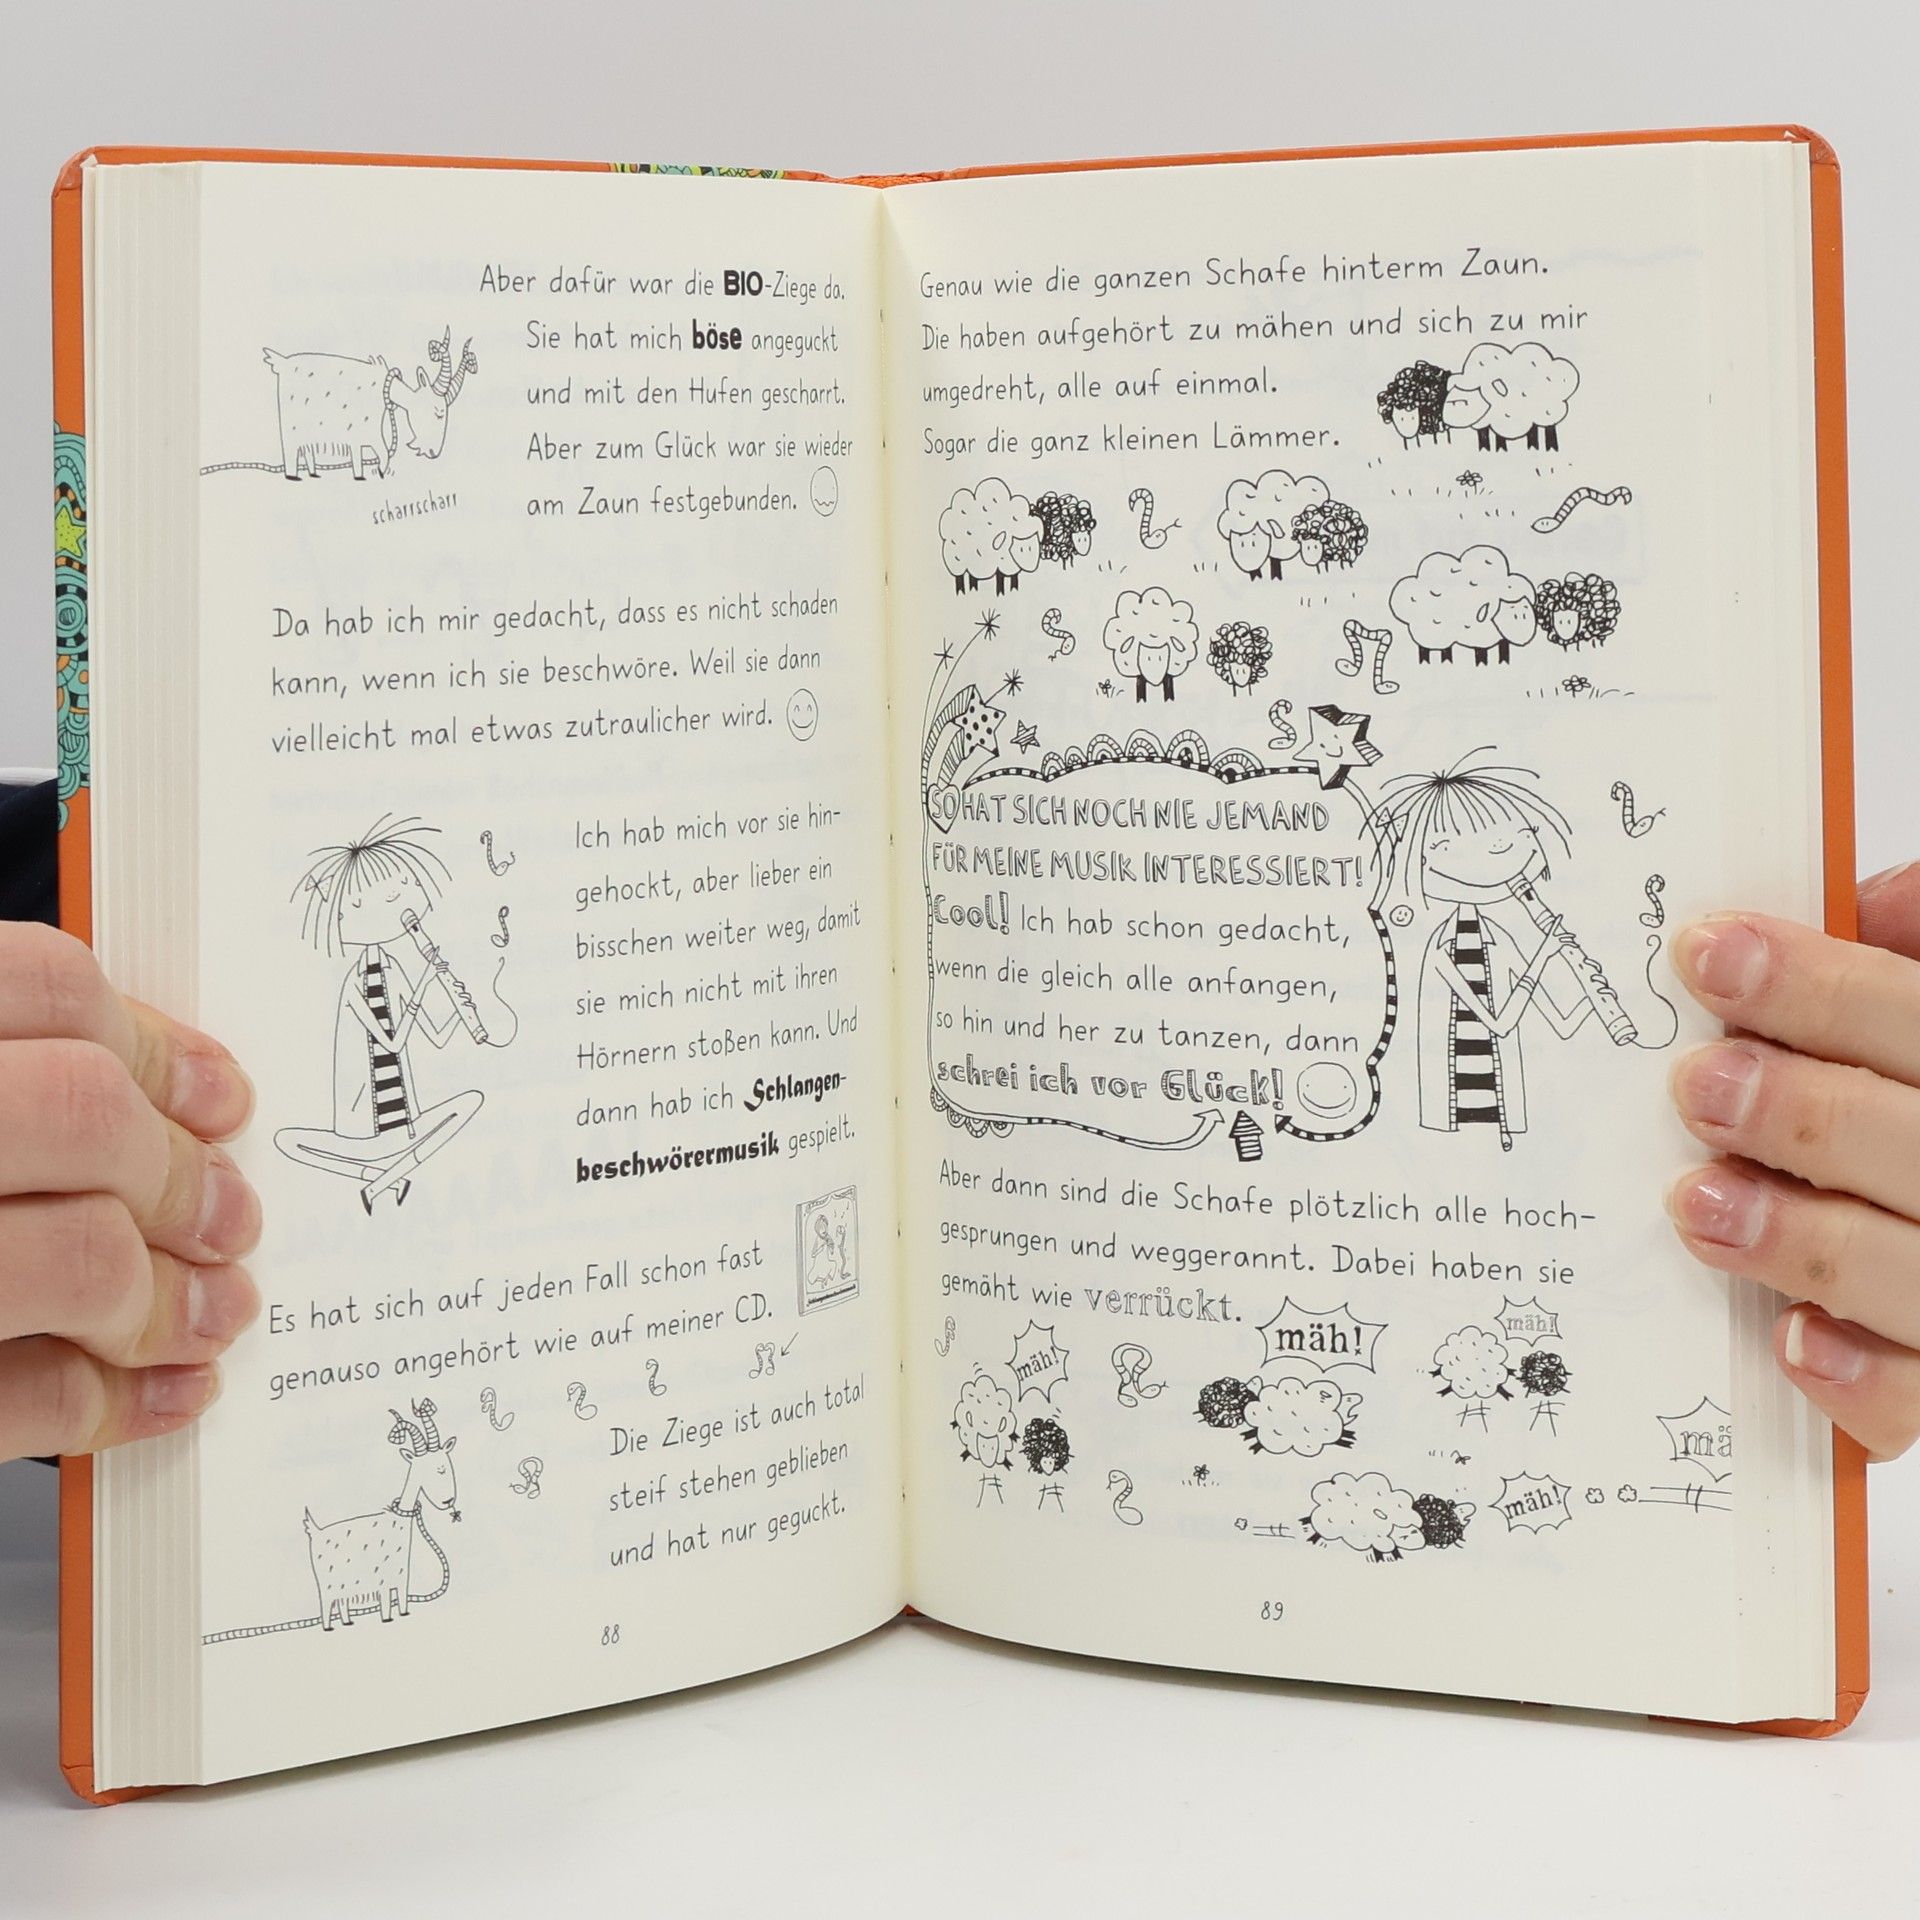 Aber dafür war die BIO-Ziege da.
Sie hat mich böse angeguckt
und mit den Hufen gescharrt.
Aber zum Glück war sie wieder
am Zaun festgebunden.
scharrscharr
Da hab ich mir gedacht, dass es nicht schaden
kann, wenn ich sie beschwöre. Weil sie dann
vielleicht mal etwas zutraulicher wird.
Ich hab mich vor sie hin-
gehockt, aber lieber ein
bisschen weiter weg, damit
sie mich nicht mit ihren
Hörnern stoßen kann. Und
dann hab ich Schlangen-
beschwörermusik gespielt.
Es hat sich auf jeden Fall schon fast
genauso angehört wie auf meiner CD.
Die Ziege ist auch total
steif stehen geblieben
und hat nur geguckt.
88
Genau wie die ganzen Schafe hinterm Zaun.
Die haben aufgehört zu mähen und sich zu mir
umgedreht, alle auf einmal.
Sogar die ganz kleinen Lämmer.
SO HAT SICH NOCH NIE JEMAND
FÜR MEINE MUSIK INTERESSIERT!
Cool! Ich hab schon gedacht,
wenn die gleich alle anfangen,
so hin und her zu tanzen, dann
schrei ich vor Glück!
Aber dann sind die Schafe plötzlich alle hoch-
gesprungen und weggerannt. Dabei haben sie
gemäht wie verrückt.
mäh!
mäh!
mäh!
mä
mäh!
89